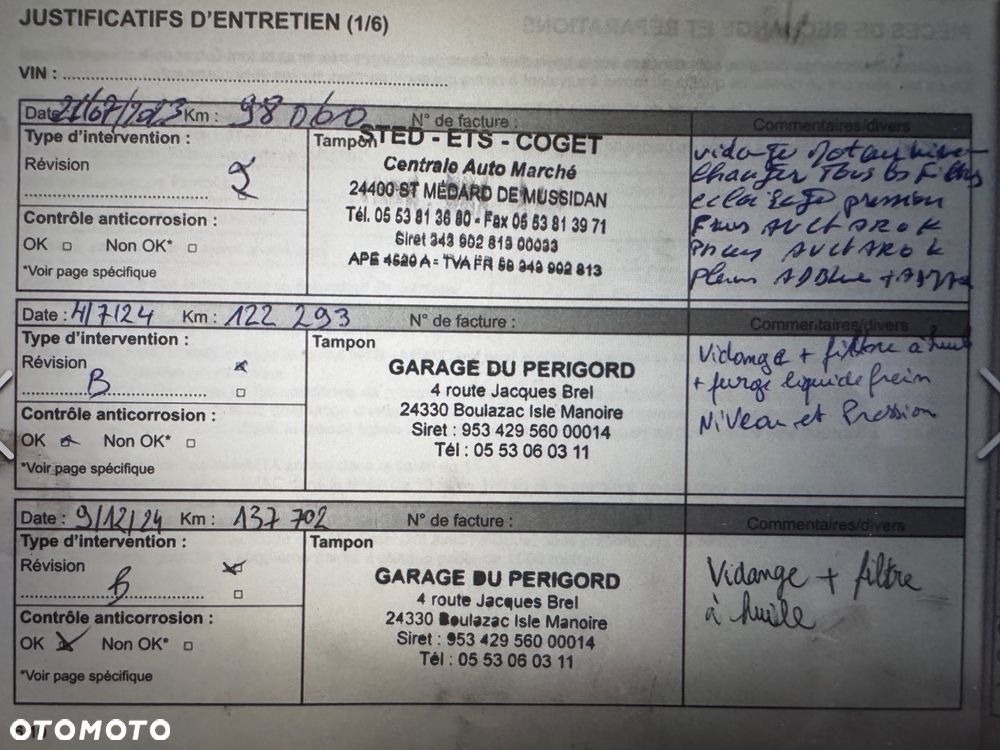 JUSTIFICATIFS D'ENTRETIEN (1/6)
VIN :
Date 21/07/2023 Km : 98 060 N° de facture : Commentaires/divers
Type d'intervention :
Révision
Contrôle anticorrosion :
OK Non OK*
*Voir page spécifique
Tampon
STED - ETS - COGET
Centrale Auto Marché
24400 ST MÉDARD DE MUSSIDAN
Tél. 05 53 81 36 80 - Fax 05 53 81 39 71
Siret 343 902 813 00033
APE 4520 A - TVA FR 58 343 902 813
vidange
changer tous les filtres
pression
AV et AR OK
pneus AV et AR OK
pleins ADBlue
Date : 4/7/24 Km : 122 293 N° de facture : Commentaires/divers
Type d'intervention :
Révision
B
Contrôle anticorrosion :
OK Non OK*
*Voir page spécifique
Tampon
GARAGE DU PERIGORD
4 route Jacques Brel
24330 Boulazac Isle Manoire
Siret : 953 429 560 00014
Tél : 05 53 06 03 11
Vidange + filtre à huile
+ purge liquide frein
Niveau et Pression
Date : 9/12/24 Km : 137 702 N° de facture : Commentaires/divers
Type d'intervention :
Révision
B
Contrôle anticorrosion :
OK Non OK*
*Voir page spécifique
Tampon
GARAGE DU PERIGORD
4 route Jacques Brel
24330 Boulazac Isle Manoire
Siret : 953 429 560 00014
Tél : 05 53 06 03 11
Vidange + filtre
à huile
OTOMOTO